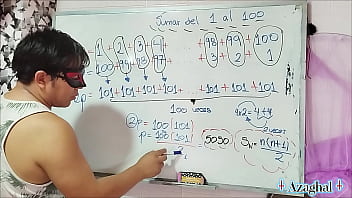 Sumar del 1 al 100
1 + 2 + 3 + 4 + 98 + 99 + 100
+ 100 + 99 + 98 + 97 + 3 + 2 + 1
101 + 101 + 101 + 101 + 101 + ... + 101 + 101
100 veces
4×2 = 4+4
2 veces
2p = 100(101)
p = 100(101)
2
5050
n(n+1)
2
‡ Azaghal ‡